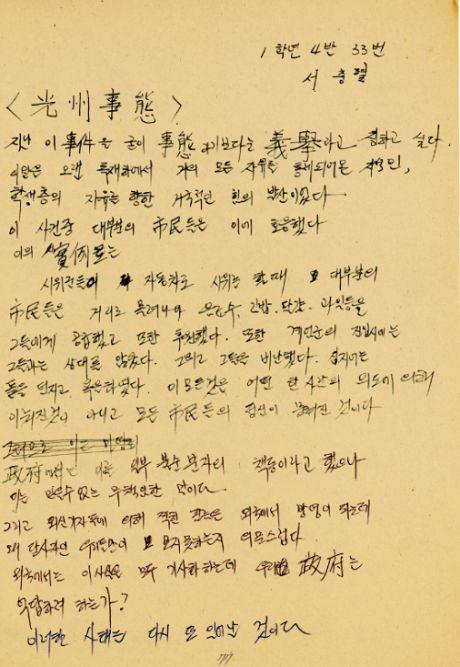 1학년 4반 33번
서충렬
<光州事態>
지난 이 事件을 굳이 事態 보다는 義擧라고 칭하고 싶다.
이란은 오랜 독재하에서 거의 모든 자유를 통제되어온 시민,
학생층의 자유를 향한 거국적인 힌의 발산이었다
이 사건중 대부분의 市民들은 이에 호응했다
이의 實例로는
시위전들이 자동차로 시위는 할때 대부분의
市民들은 거리로 몰려나와 음료수, 김밥, 달걀, 과일들을
그들에게 공급했고 또한 후원했다. 또한 계엄군의 진입시에는
그들과는 상대를 않았다. 그리고 그들을 비난했다. 심지어는
돌을 던지고, 폭언하였다. 이 모든것은 어떤 한 사람의 의도에 의해
이뤄진것이 아니고 모든 市民들의 정신이 뭉쳐진 것이다
政府에서는 이를 일부 불순분자의 책동이라고 했으나
이는 믿을수 없는 무책임한 말이다
그리고 외신기자들에 의해 찍힌 필름은 외국에서 방영이 되는데
왜 당사자인 우리들만이 보지못하는지 의문스럽다
외국에서는 이 사실을 모두 기사화하는데 우리 政府는
억압하려 하는가?
이러한 사태는 다시 또 일어날 것이다